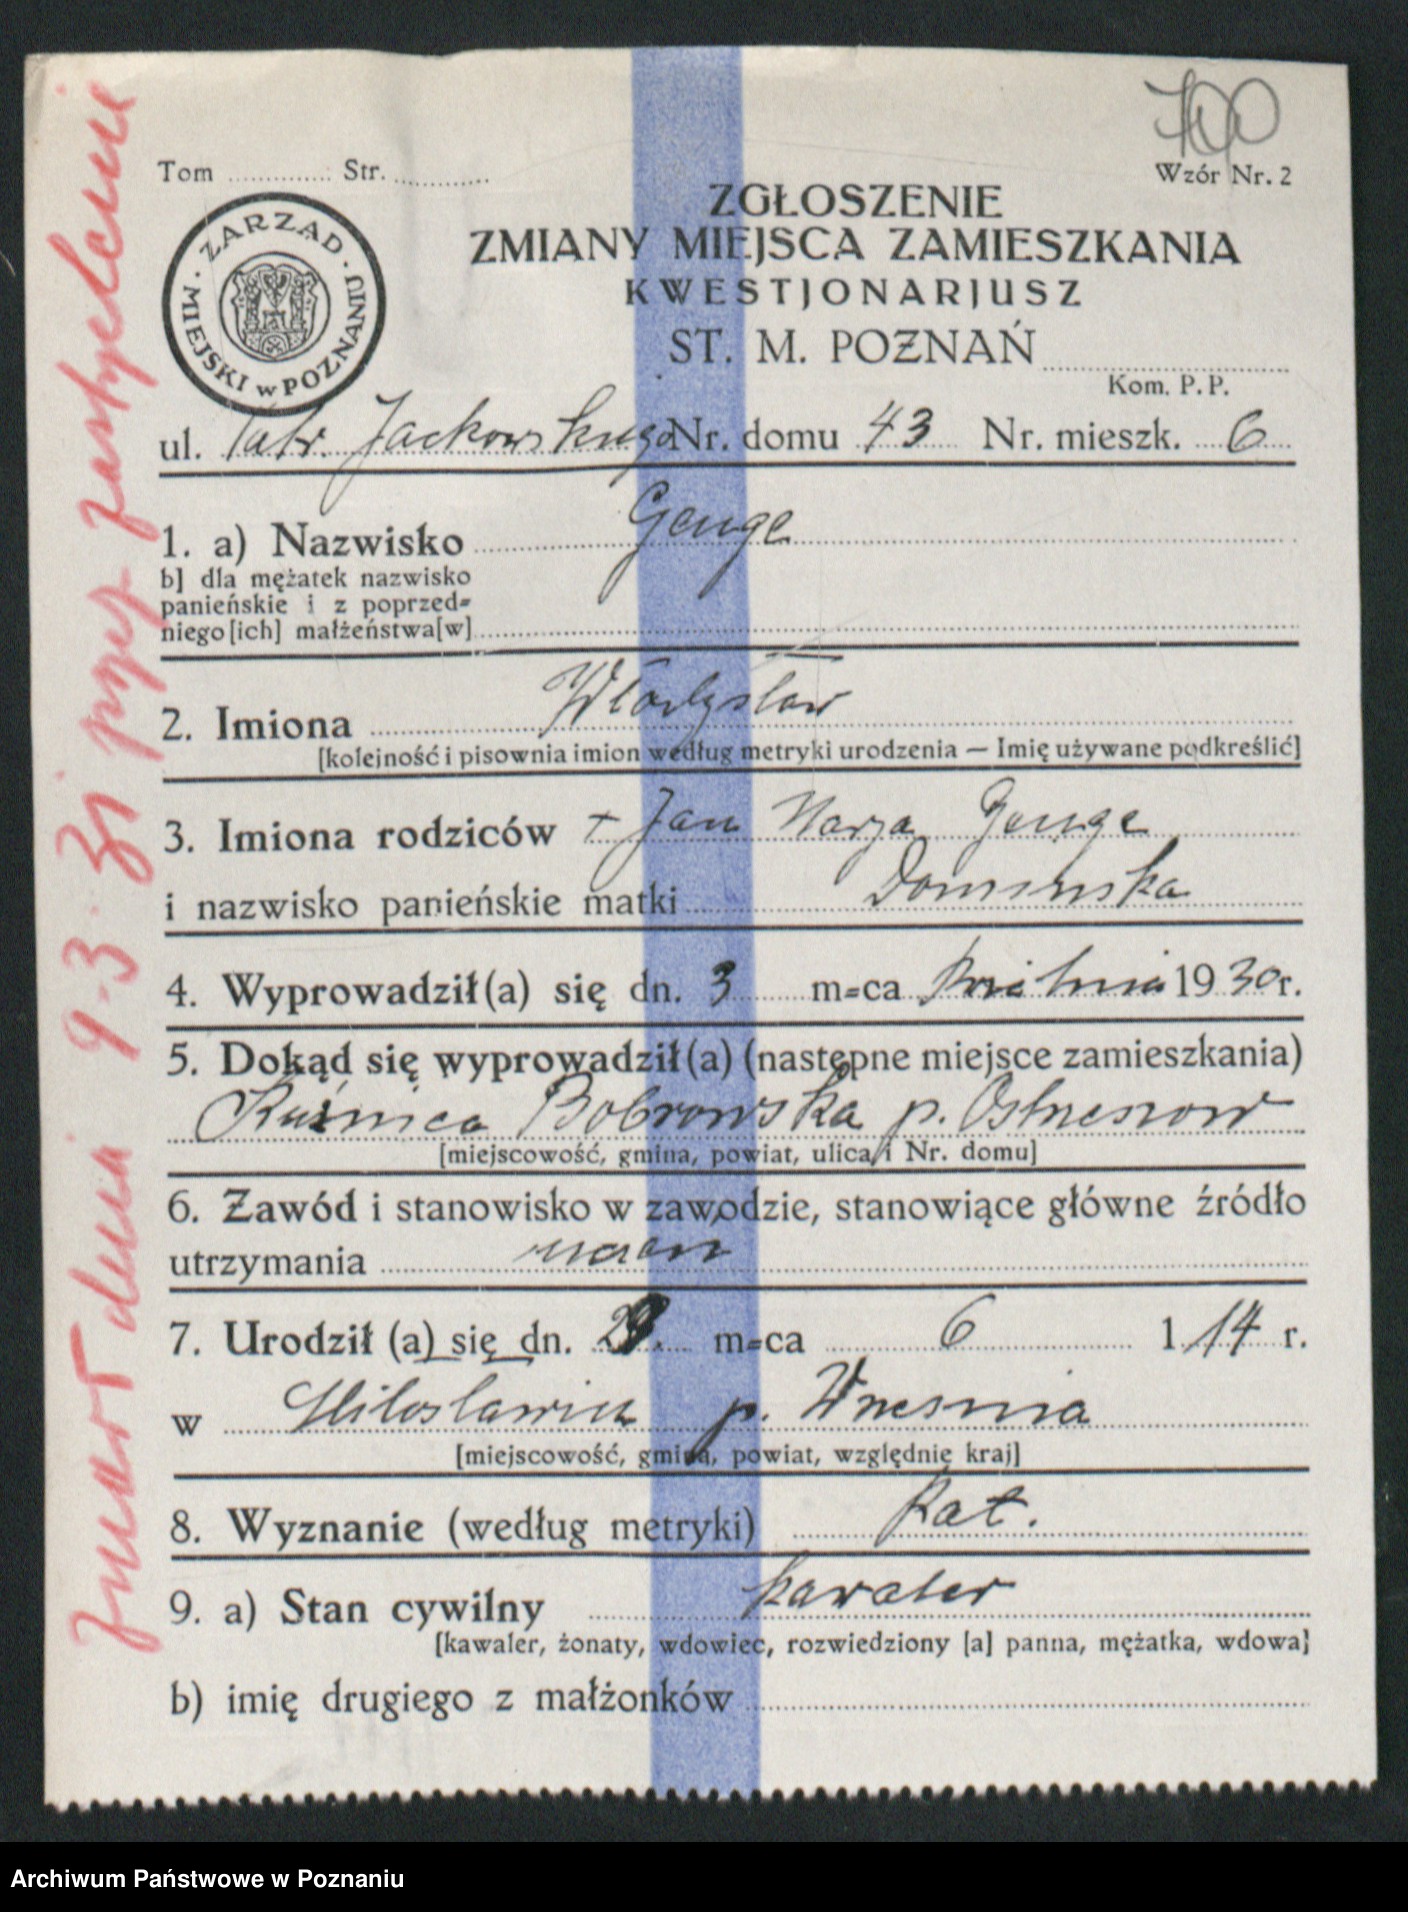 700
Tom ............ Str. ............
Wzór Nr. 2
ZARZĄD · MIEJSKI w POZNANIU ·
ZGŁOSZENIE
ZMIANY MIEJSCA ZAMIESZKANIA
KWESTJONARJUSZ
ST. M. POZNAŃ
Kom. P.P.
ul. Patr. Jackowskiego Nr. domu 43 Nr. mieszk. 6
1. a) Nazwisko Genge
b] dla mężatek nazwisko
panieńskie i z poprzed=
niego[ich] małżeństwa[w]
2. Imiona Władysław
[kolejność i pisownia imion według metryki urodzenia — Imię używane podkreślić]
3. Imiona rodziców + Jan Marja Genge
i nazwisko panieńskie matki Domińska
4. Wyprowadził(a) się dn. 3 m=ca Kwietnia 1930 r.
5. Dokąd się wyprowadził(a) (następne miejsce zamieszkania)
Kuźnica Bobrowska p. Ostrzeszow
[miejscowość, gmina, powiat, ulica i Nr. domu]
6. Zawód i stanowisko w zawodzie, stanowiące główne źródło
utrzymania uczeń
7. Urodził (a) się dn. 29. m=ca 6 1 14 r.
w Miłosławiu p. Wresnia
[miejscowość, gmina, powiat, względnie kraj]
8. Wyznanie (według metryki) Kat.
9. a) Stan cywilny kawaler
[kawaler, żonaty, wdowiec, rozwiedziony [a] panna, mężatka, wdowa]
b) imię drugiego z małżonków
zmarł dnia 9.3.31 przez zastrzelenie
Archiwum Państwowe w Poznaniu